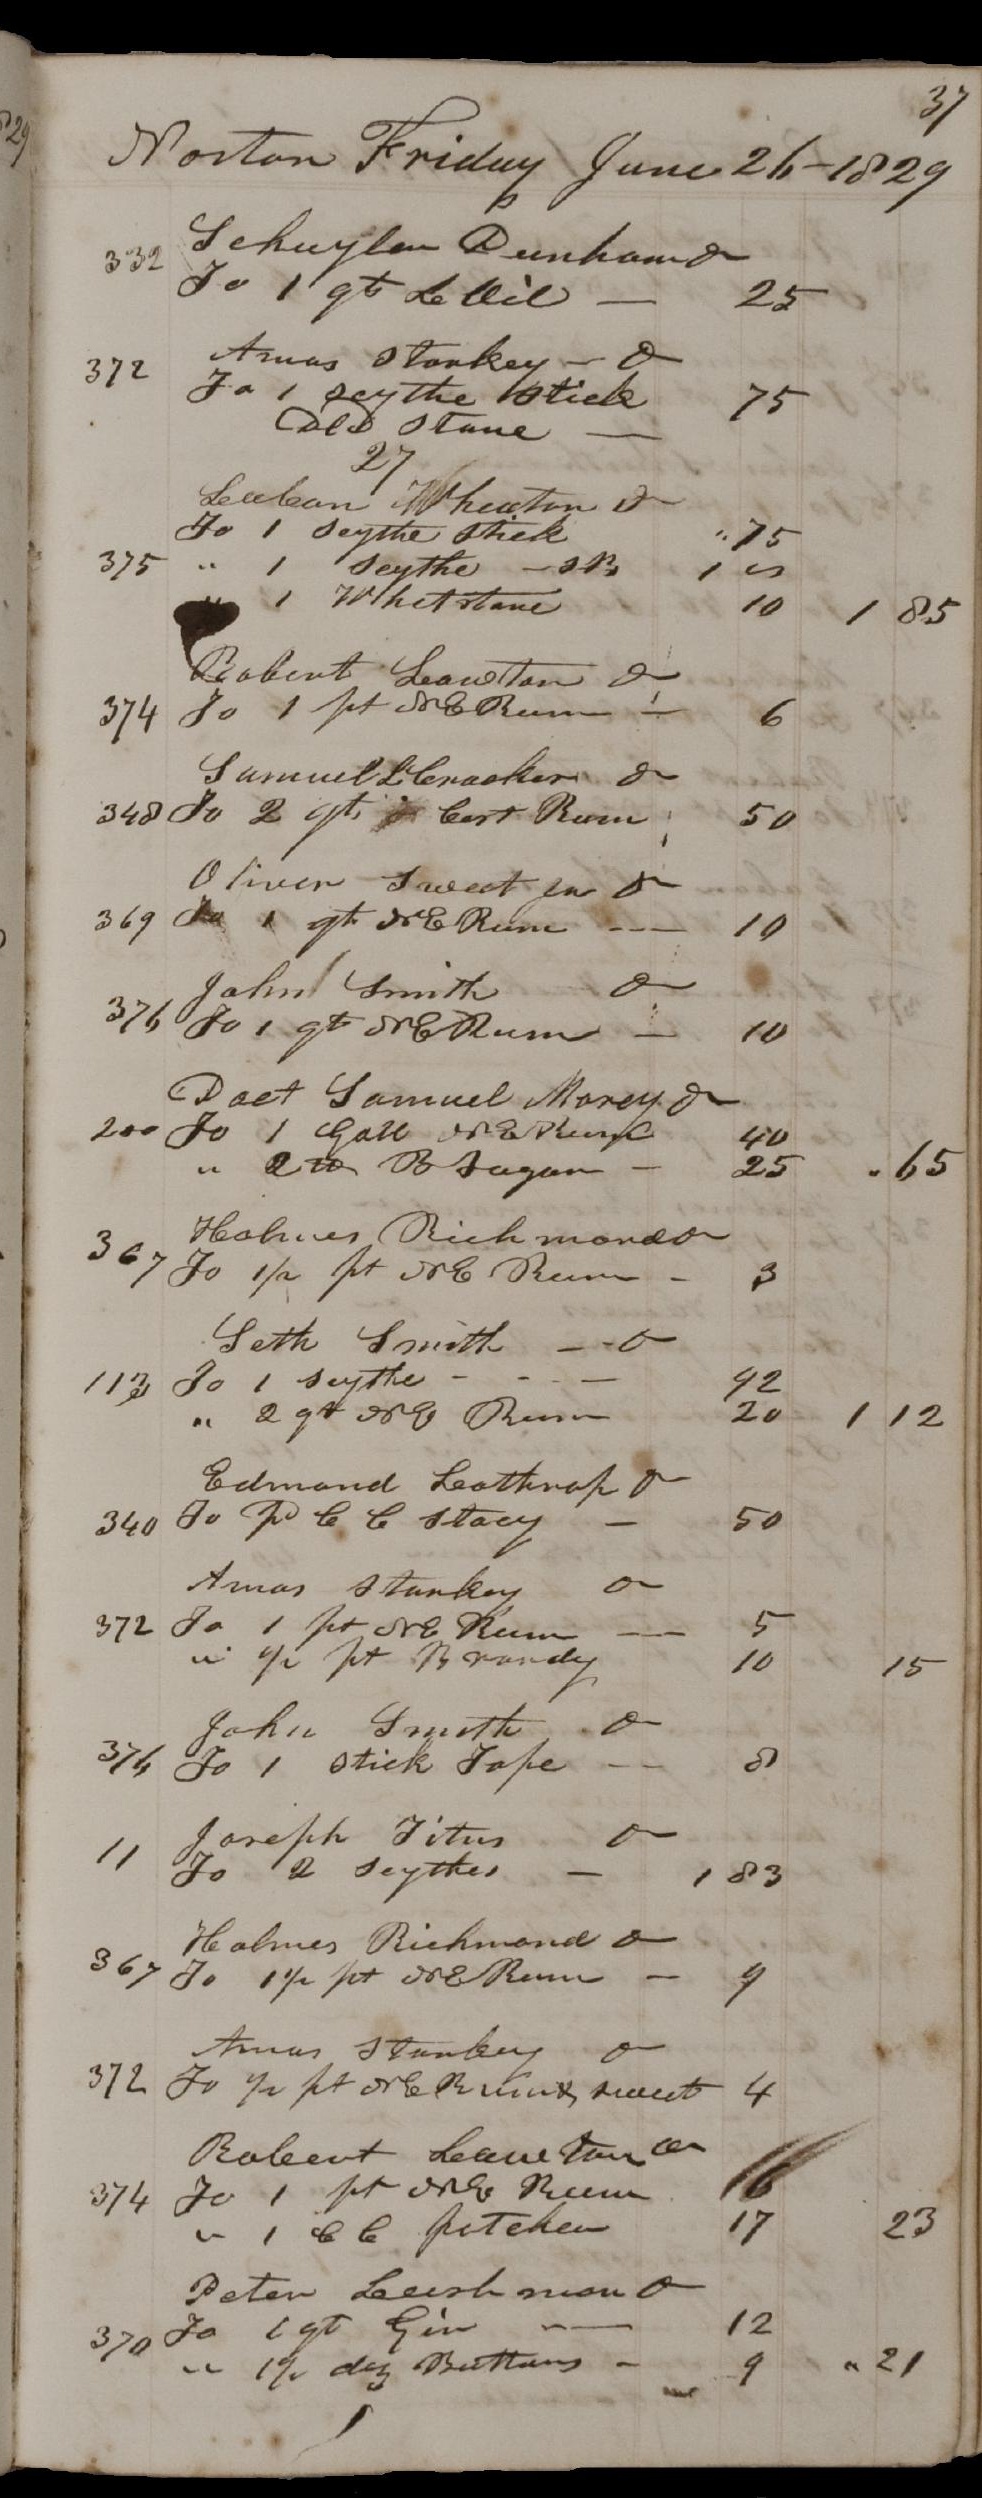 37
Norton Friday June 26 - 1829
332 Schuyler Dunham Dr
To 1 qt L Oil — 25
Amos Starkey — Dr
372 To 1 scythe stick 75
Old Stone —
27
Laban Wheaton Dr
To 1 Scythe Stick " 75
375 " 1 Scythe 1
" 1 Whetstone 10 1 85
Robert Lawton Dr
374 To 1 pt N E Rum — 6
Samuel L Crocker Dr
348 To 2 qts Rum 50
Oliver Sweet Jr Dr
369 To 1 qt N E Rum — 10
John Smith Dr
376 To 1 qt N E Rum — 10
Doct Samuel Morey Dr
200 To 1 Gall N E Rum 40
" 2 lb B Sugar — 25 " 65
Holmes Richmond Dr
367 To 1/2 pt N E Rum — 3
Seth Smith — Dr
113 To 1 scythe - - - — 92
" 2 qt N E Rum 20 1 12
Edmond Leathrop Dr
340 To pd C C Stacy — 50
Amos Starkey Dr
372 To 1 pt N E Rum — 5
" 1/2 pt Brandy 10 15
John Smith Dr
376 To 1 stick Tape — 8
Joseph Titus Dr
11 To 2 scythes — 1 83
Holmes Richmond Dr
367 To 1 1/2 pt N E Rum — 9
Amos Starkey Dr
372 To 1/2 pt N E Rum & sweet 4
Robert Lawton Dr
374 To 1 pt N E Rum 6
" 1 C C pitcher 17 23
Peter Leishman Dr
370 To 1 qt Gin — 12
" 1 1/2 doz Buttons — 9 " 21